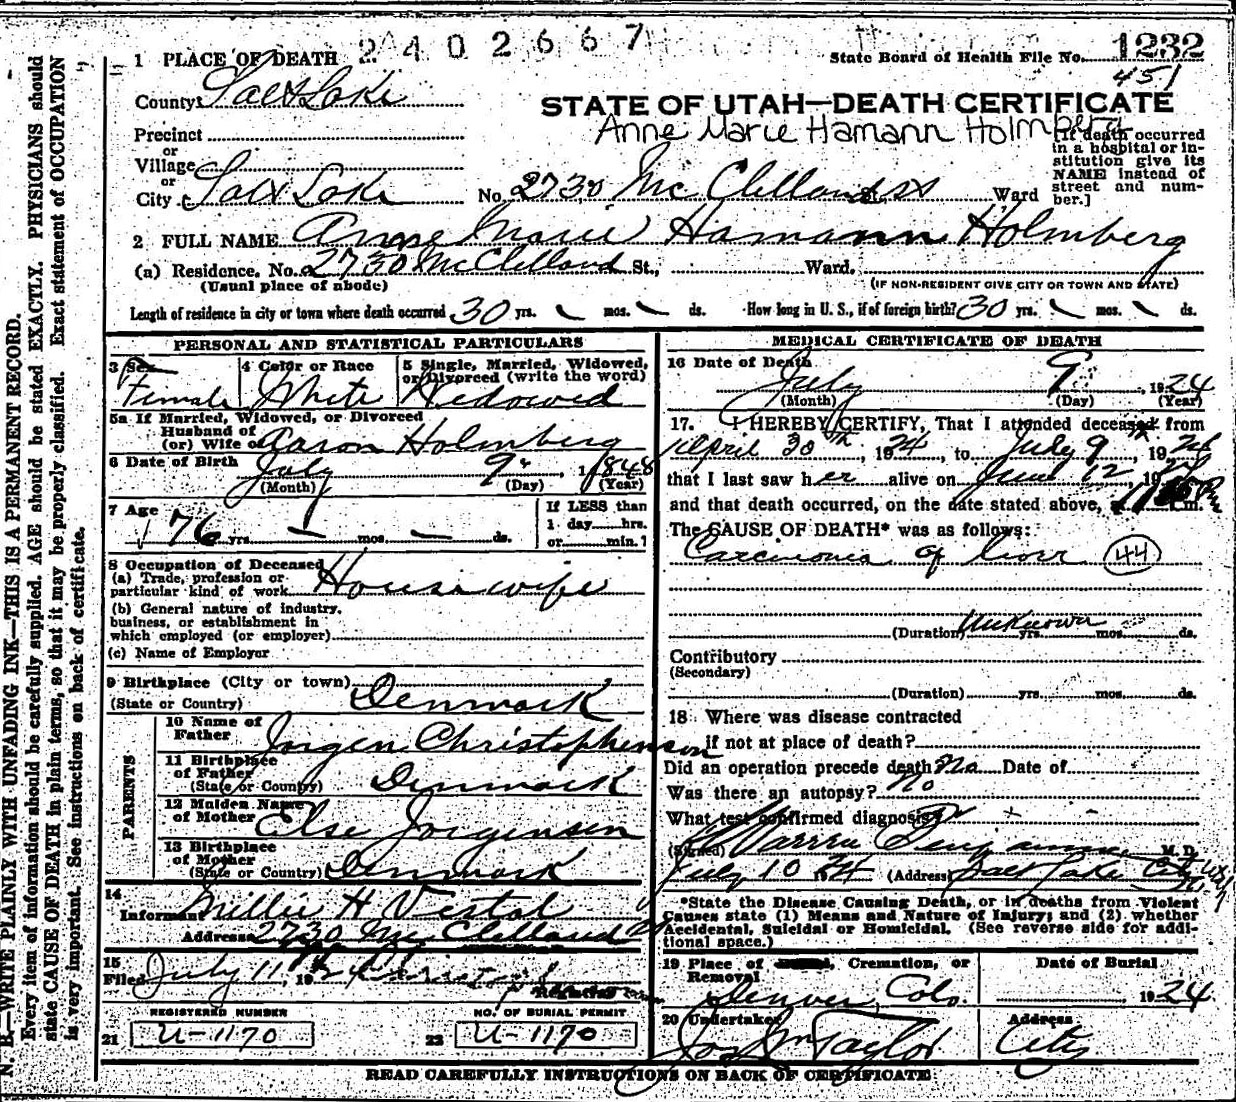 2402667
State Board of Health File No. 1232
451
1 PLACE OF DEATH
County Salt Lake
STATE OF UTAH—DEATH CERTIFICATE
Anne Marie Hamann Holmberg
Precinct
or
Village
or
City Salt Lake
No. 2730 McClelland St., Ward
[If death occurred
in a hospital or in-
stitution give its
NAME instead of
street and num-
ber.]
2 FULL NAME Anne Marie Hamann Holmberg
(a) Residence. No. 2730 McClelland St., Ward.
(Usual place of abode)
(IF NON-RESIDENT GIVE CITY OR TOWN AND STATE)
Length of residence in city or town where death occurred 30 yrs. mos. ds. How long in U. S., if of foreign birth? 30 yrs. mos. ds.
PERSONAL AND STATISTICAL PARTICULARS
3 Sex
Female
4 Color or Race
White
5 Single, Married, Widowed,
or Divorced (write the word)
Widowed
5a If Married, Widowed, or Divorced
Husband of
(or) Wife of Aaron Holmberg
6 Date of Birth July 9 1848
(Month) (Day) (Year)
7 Age
76 yrs. — mos. — ds.
If LESS than
1 day hrs.
or min.?
8 Occupation of Deceased
(a) Trade, profession or
particular kind of work Housewife
(b) General nature of industry,
business, or establishment in
which employed (or employer)
(c) Name of Employer
9 Birthplace (City or town)
(State or Country) Denmark
PARENTS
10 Name of
Father Jorgen Christophenson
11 Birthplace
of Father
(State or Country) Denmark
12 Maiden Name
of Mother Else Jorgensen
13 Birthplace
of Mother
(State or Country) Denmark
14
Informant Millie H Vestal
Address 2730 McClelland
15
Filed July 11, 1924
Registrar
REGISTERED NUMBER
21 U-1170
NO. OF BURIAL PERMIT
22 U-1170
MEDICAL CERTIFICATE OF DEATH
16 Date of Death
July 9 1924
(Month) (Day) (Year)
17. I HEREBY CERTIFY, That I attended deceased from
April 30th, 1924, to July 9th, 1924
that I last saw her alive on June 12, 1924
and that death occurred, on the date stated above, m.
The CAUSE OF DEATH* was as follows:
Carcinoma of liver 44
(Duration) Unknown yrs. mos. ds.
Contributory
(Secondary)
(Duration) yrs. mos. ds.
18 Where was disease contracted
if not at place of death?
Did an operation precede death No Date of
Was there an autopsy? No
What test confirmed diagnosis?
(Signed) Warren Benjamin M. D.
July 10 1924 (Address) Salt Lake City Utah
*State the Disease Causing Death, or in deaths from Violent
Causes state (1) Means and Nature of Injury; and (2) whether
Accidental, Suicidal or Homicidal. (See reverse side for addi-
tional space.)
19 Place of Cremation, or
Removal
Denver, Colo.
Date of Burial
1924
20 Undertaker
Jos Wm Taylor
Address
City
READ CAREFULLY INSTRUCTIONS ON BACK OF CERTIFICATE
N. B.—WRITE PLAINLY WITH UNFADING INK—THIS IS A PERMANENT RECORD.
Every item of information should be carefully supplied. AGE should be stated EXACTLY. PHYSICIANS should
state CAUSE OF DEATH in plain terms, so that it may be properly classified. Exact statement of OCCUPATION
is very important. See instructions on back of certificate.